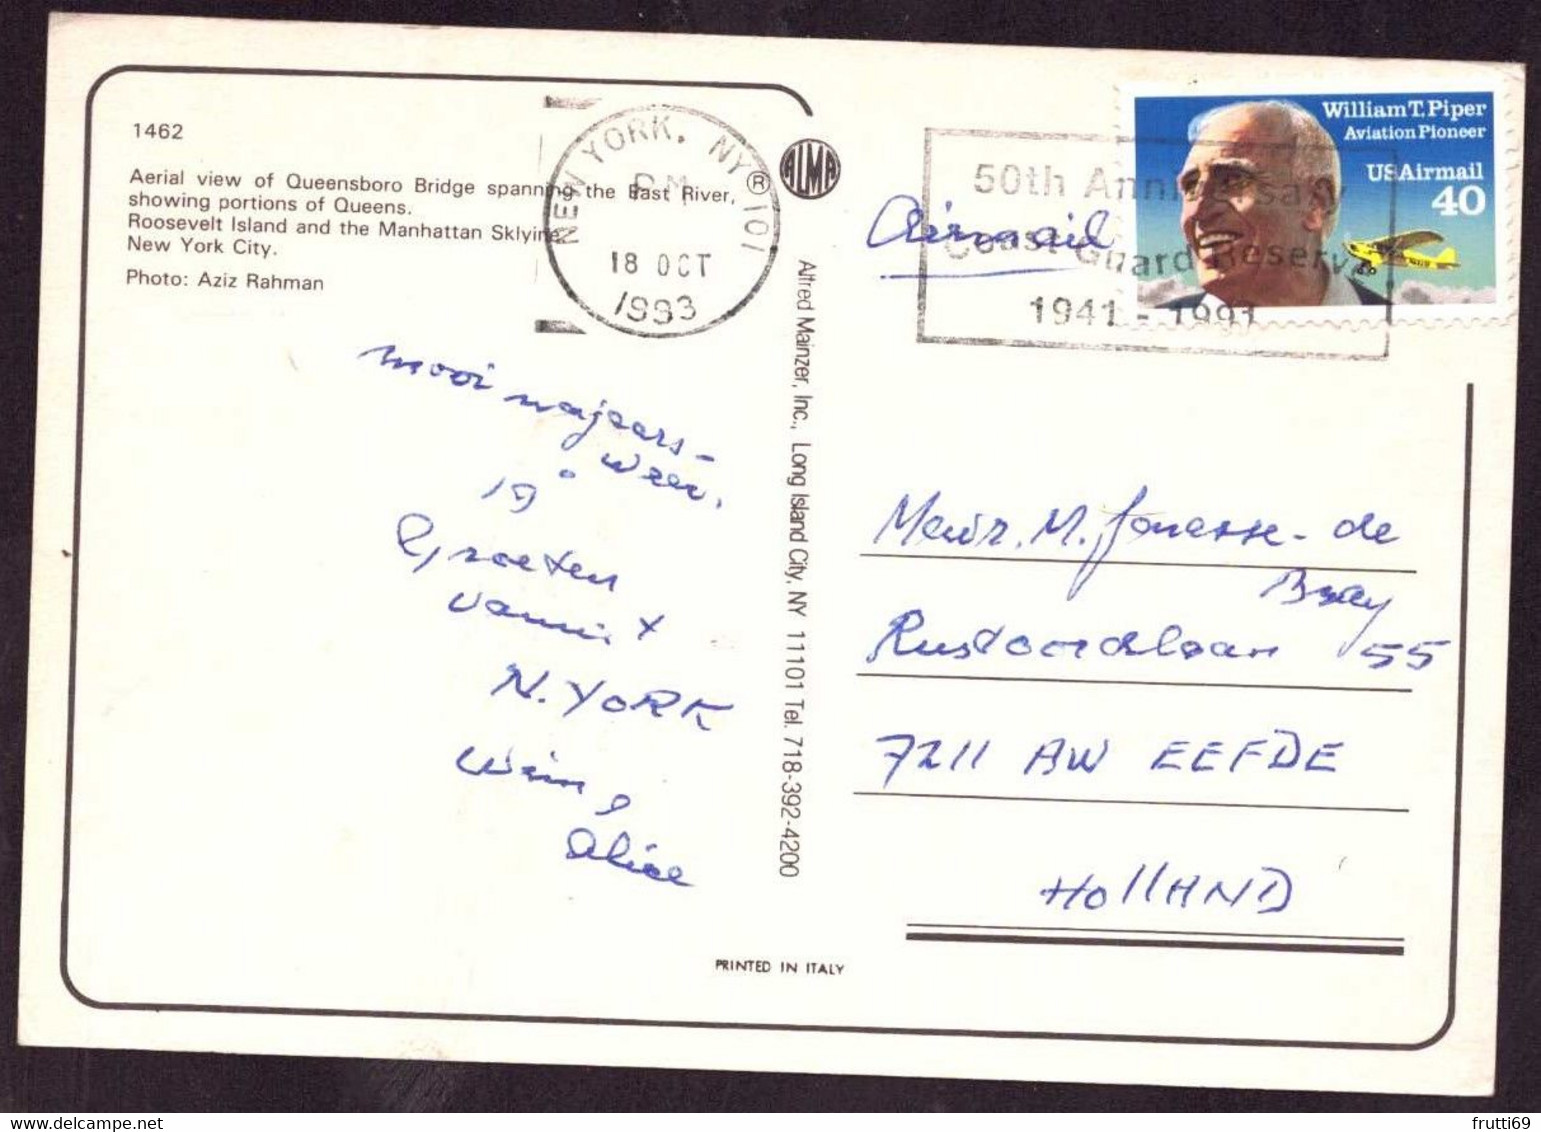 1462
Aerial view of Queensboro Bridge spanning the East River,
showing portions of Queens.
Roosevelt Island and the Manhattan Sklyine
New York City.
Photo: Aziz Rahman
NEW YORK, NY 101
PM
18 OCT
1993
®
ALMA
Alfred Mainzer, Inc., Long Island City, NY 11101 Tel. 718-392-4200
mooi najaars-
weer.
19°
Groeten
vanuit
N. YORK
Wim &
Alice
PRINTED IN ITALY
Airmail
50th Anniversary
Coast Guard Reserve
1941 - 1991
William T. Piper
Aviation Pioneer
US Airmail
40
Mevr. M. - de
Bray
Rustoordlaan 55
7211 AW EEFDE
HOLLAND
frutti69